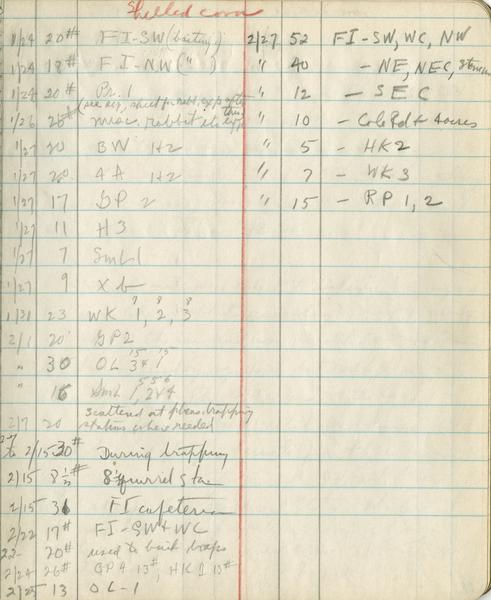 Shelled corn
1/24 20# FI-SW (baiting)
1/24 18# F I-NW ( " )
1/24 20# Pr. 1
(see sep. sheet for rabb. exps after this)
1/26 misc. rabbit etc exps
1/27 20 BW 1+2
1/27 20 4A 1+2
1/27 17 GP 2
1/27 11 H3
1/27 7 Sml 1
1/27 9 X b
1/31 23 WK 1, 2, 3
7 8 8
2/1 20 GP2
" 30 OL 3+ 1
15 15
" 16 Sml 1, 2+4
5 5 6
scattered at pheas. trapping
2/7 20 stations where needed
to 2/15 30# During trapping
2/15 8 1/2# 8 squirrel sta
2/15 36 FI cafeteria
2/22 17# FI-SW+WC
22- 20# used to bait traps
2/24 26# GP4 13#, HK 1 13#
2/25 13 OL-1
2/27 52 FI-SW, WC, NW
" 40 -NE, NEC,
" 12 - SEC
" 10 - Cole Rd + 4 acres
" 5 - HK2
" 7 - WK 3
" 15 - RP 1, 2